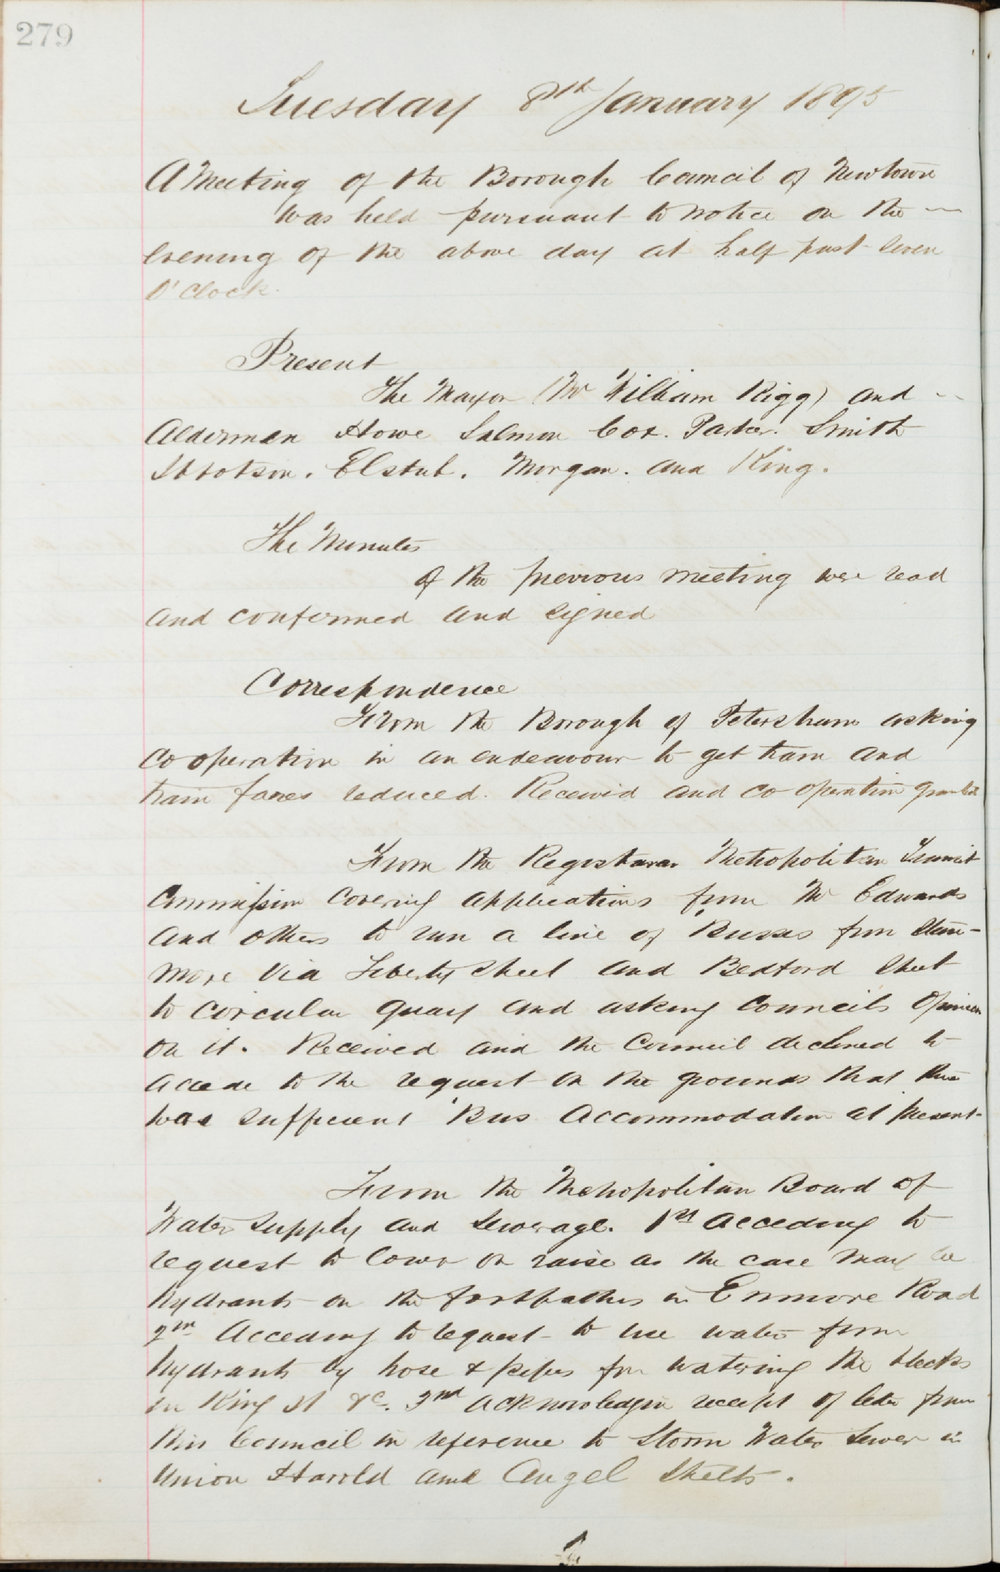 279
Tuesday 8th January 1895
A Meeting of the Borough Council of Newtown
was held pursuant to notice on the
evening of the above day at half past seven
O'Clock.
Present
The Mayor (Mr William Rigg) and
Aldermen Howe Salmon Cox. Parker. Smith
Ibbotson. Elstub. Morgan. and King.
The Minutes
of the previous meeting were read
and confirmed and signed
Correspondence
From the Borough of Petersham asking
co operation in an endeavour to get tram and
train fares reduced. Received and co operation granted
From the Registrar Metropolitan Transit
Commission covering applications from Mr Edwards
and others to run a line of 'Busses from Stan-
more via Liberty Street and Bedford Street
to Circular Quay and asking Councils Opinion
on it. Received and the Council declined to
accede to the request on the grounds that there
was sufficient 'Bus Accommodation at present-
From the Metropolitan Board of
Water Supply and Sewerage. 1st Acceding to
request to lower or raise as the case may be
hydrants on the footpaths in Enmore Road
2nd Acceding to request to use water from
hydrants by hose & pipes for watering the blocks
in King St &c. 3rd Acknowledging receipt of letter from
this Council in reference to Storm Water Sewer in
Union Harold and Angel Streets.